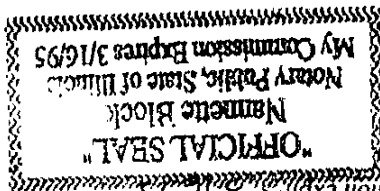 "OFFICIAL SEAL"
Nannette Block
Notary Public, State of Illinois
My Commission Expires 3/16/95